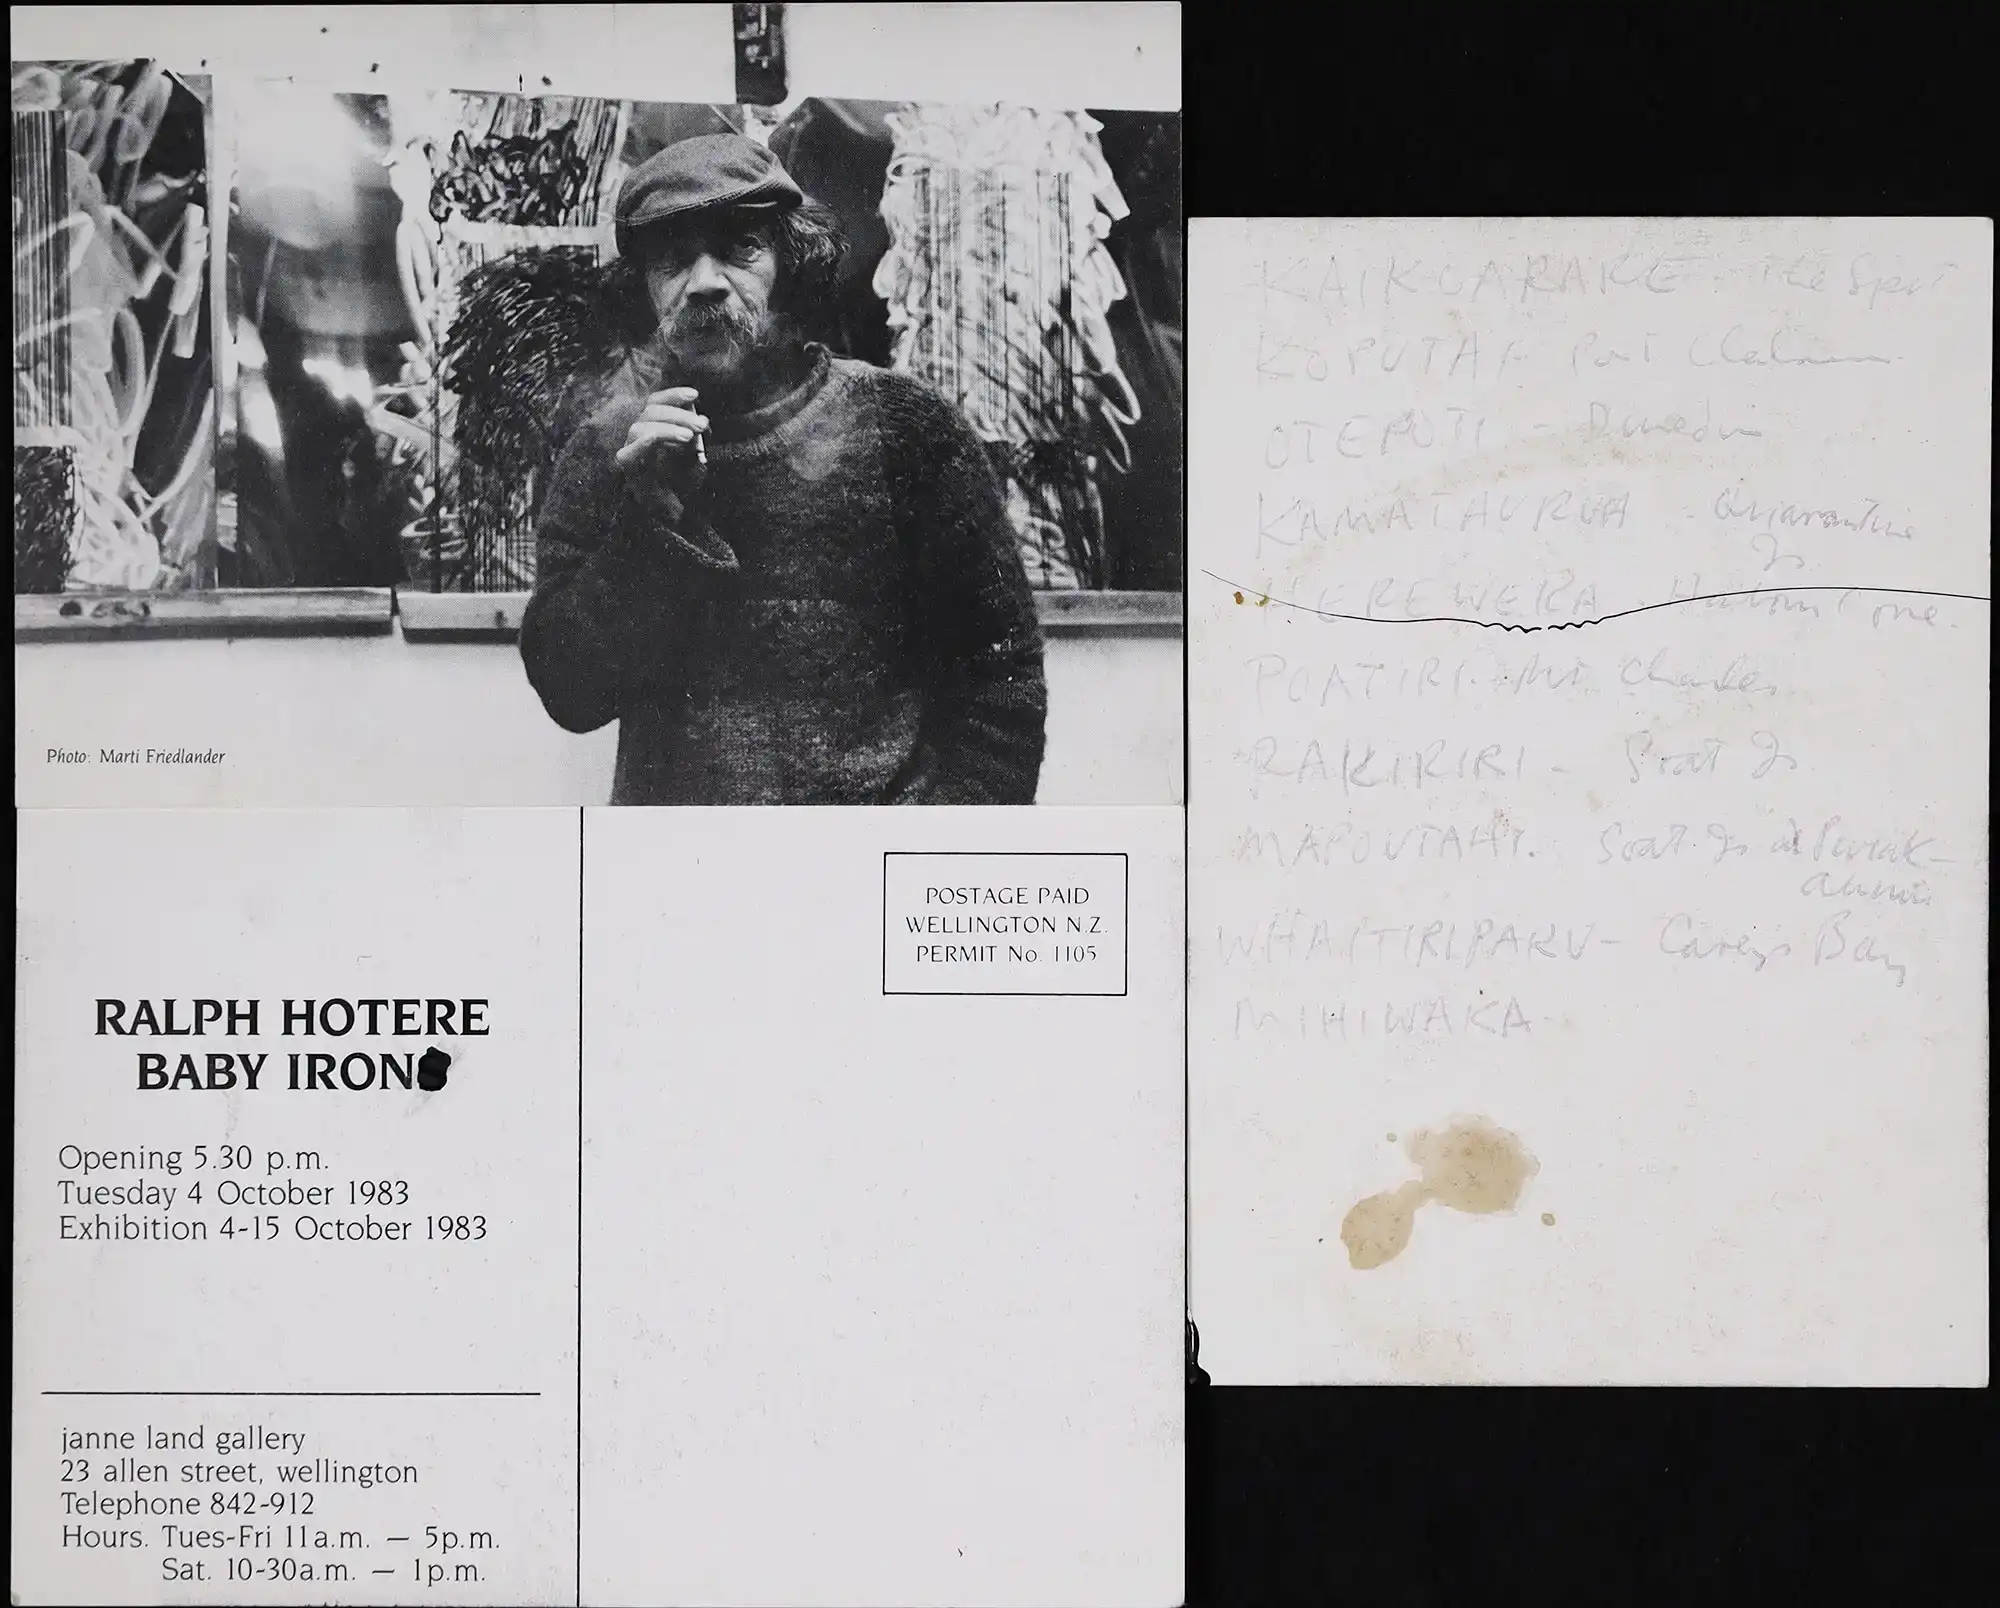 Photo: Marti Friedlander
RALPH HOTERE
BABY IRON
Opening 5.30 p.m.
Tuesday 4 October 1983
Exhibition 4-15 October 1983
janne land gallery
23 allen street, wellington
Telephone 842-912
Hours. Tues-Fri 11a.m. — 5p.m.
Sat. 10-30a.m. — 1p.m.
POSTAGE PAID
WELLINGTON N.Z.
PERMIT No. 1105
KAIKUARAKE - The Spit
KOPUTAI - Port Chalmers
OTEPOTI - Dunedin
KAMATAURUA - Quarantine
Is
HEREWEKA - Harbour Cone.
POATIRI - Mt Charles
RAKIRIRI - Goat Is
MAPOUTAHI. Goat Is at Purak-
anui
WHAITIRIPAKU - Careys Bay
MIHIWAKA -